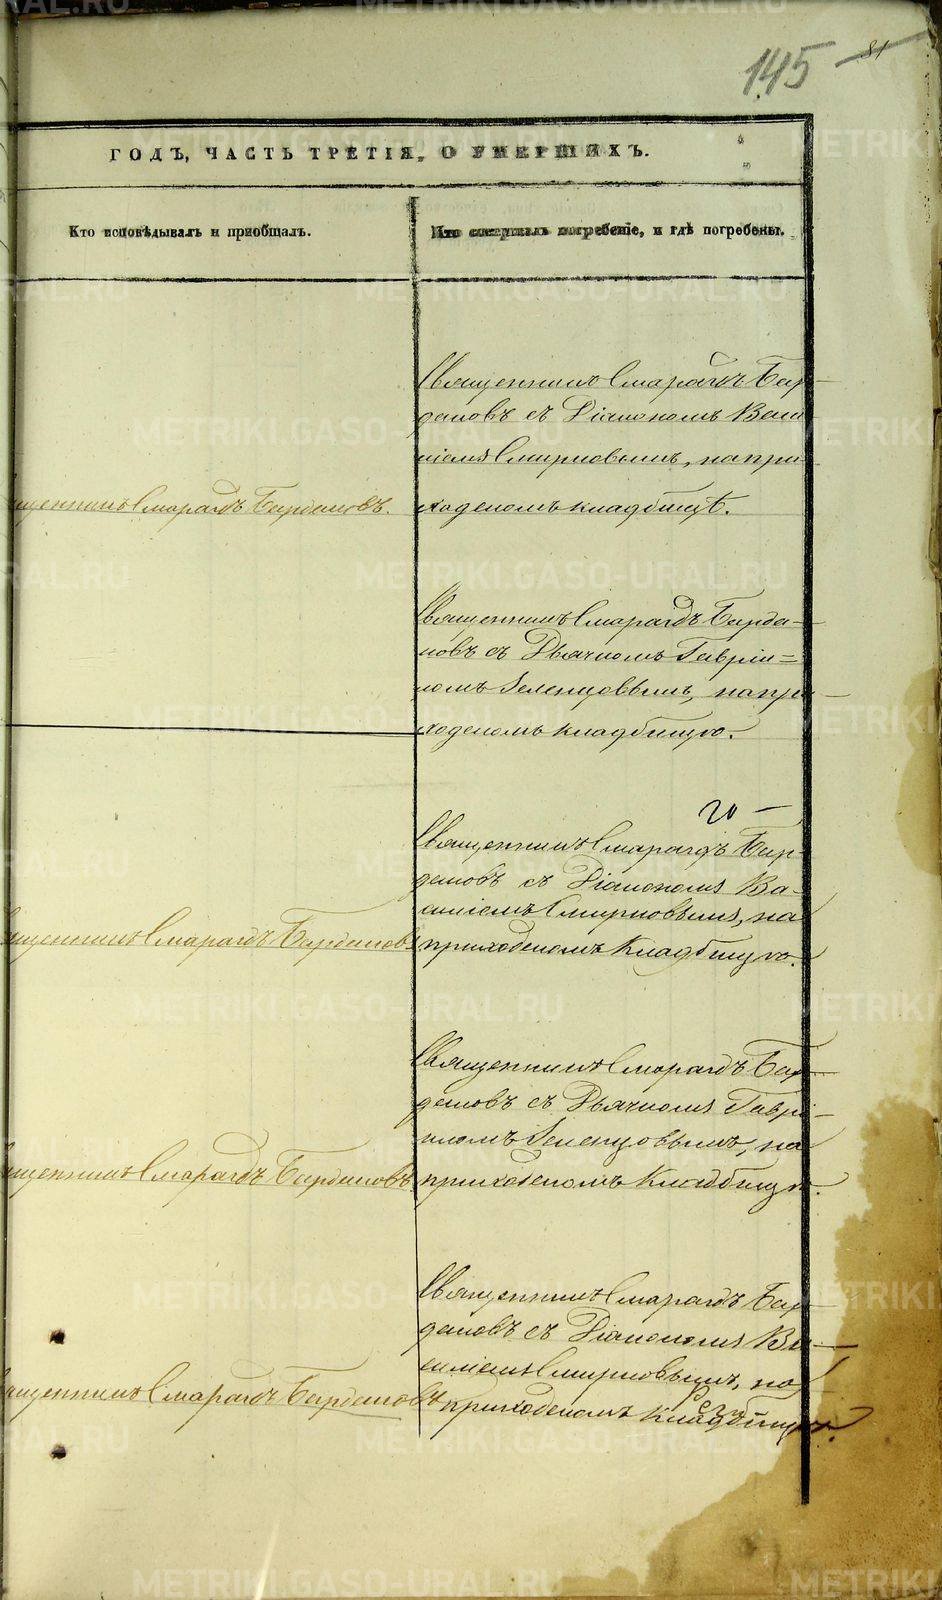 145 81
ГОДЪ, ЧАСТЬ ТРЕТІЯ, О УМЕРШИХЪ.
Кто исповѣдывалъ и приобщалъ.
Кто совершалъ погребеніе, и гдѣ погребены.
Священникъ Смарагдъ Бар-
дановъ съ Діакономъ Васи
ліемъ Смирновымъ, на при
ходскомъ кладбищѣ.
щенникъ Смарагдъ Бардановъ.
Священникъ Смарагдъ Барда-
новъ съ Дьячкомъ Гаврiи=
ломъ Зеленцовымъ, на при-
ходскомъ кладбищѣ.
Священникъ Смарагдъ Бар-
дановъ съ Діакономъ Ва-
силіемъ Смирновымъ, на
приходскомъ кладбищѣ.
щенникъ Смарагдъ Бардановъ
Священникъ Смарагдъ Бар-
дановъ съ Дьячкомъ Гаврі-
иломъ Зеленцовымъ, на
приходскомъ кладбищѣ.
щенникъ Смарагдъ Бардановъ
Священникъ Смарагдъ Бар-
дановъ съ Діакономъ Ва-
силіемъ Смирновымъ, на
приходскомъ кладбищѣ.
ященникъ Смарагдъ Бардановъ
METRIKI.GASO-URAL.RU